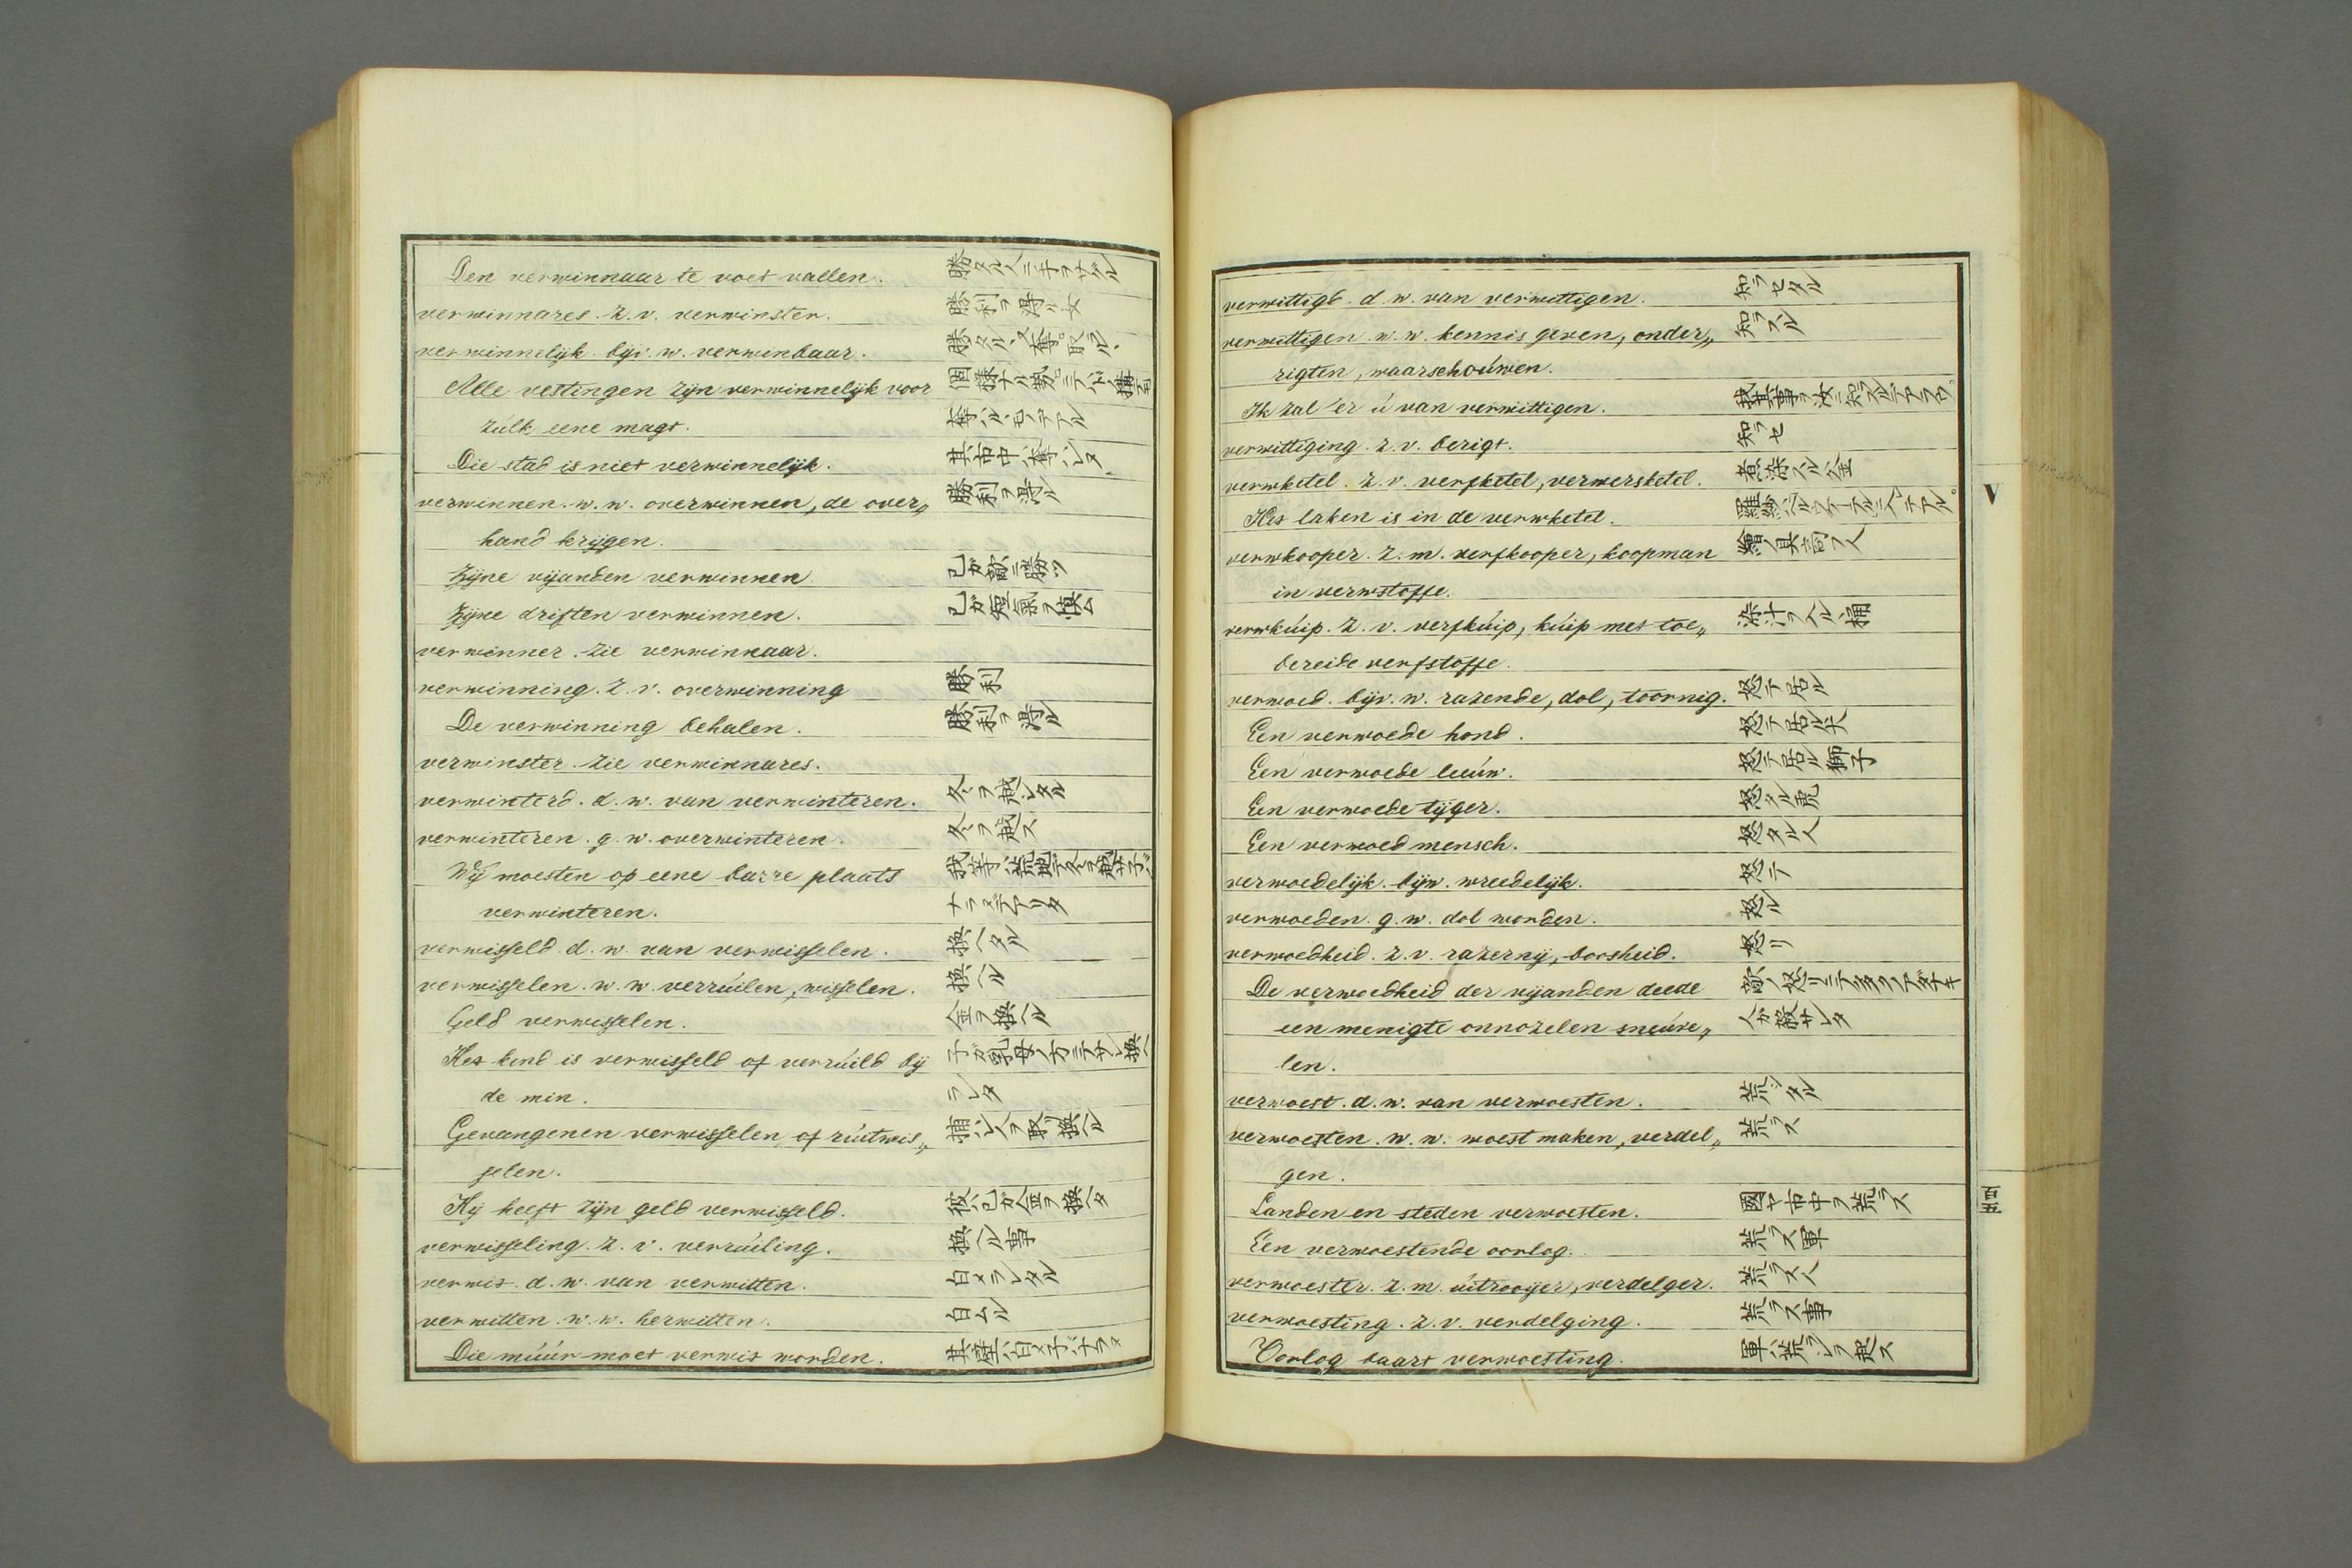 Den verwinnaar te voet vallen. 勝タル人ニ手ヲサゲル
verwinnares. z. v. verwinster. 勝利ヲ得ル女
verwinnelijk. bijv. w. verwinbaar.
Alle vestingen zijn verwinnelijk voor
zúlk eene magt.
Die stad is niet verwinnelijk.
verwinnen. w. w. overwinnen, de over„ 勝利ヲ得ル
hand krijgen.
Zijne vijanden verwinnen 己が敵ニ勝ツ
Zijne driften verwinnen. 己が短氣ヲ慎ム
verwinner. zie verwinnaar.
verwinning. z. v. overwinning 勝利
De verwinning behalen. 勝利ヲ得ル
verwinster. zie verwinnares.
verwinterd. d. w. van verwinteren. 冬ヲ越シタル
verwinteren. g. w. overwinteren. 冬ヲ越ス
Wij moesten op eene barre plaats
verwinteren.
verwisseld. d. w. van verwisselen. 換ヘタル
verwisselen. w. w. verrúilen, wisselen. 換ヘル
Geld verwisselen. 金ヲ換ヘル
Het kind is verwisseld of verrúild bij
de min. ラレタ
Gevangenen verwisselen of rúitwis„
selen.
Hij heeft zijn geld verwisseld. 彼ハ己が金ヲ換ヘタ
verwisseling. z. v. verrúiling. 換ヘル事
verwit. d. w. van verwitten. 白メラレタル
verwitten. w. w. herwitten. 白ムル
Die múúr moet verwit worden. 其壁ハ白メ子バナラヌ
verwittigd. d. w. van verwittigen. 知ラセタル
verwittigen w. w. kennis geven, onder„ 知ラスル
rigten, waarschoúwen.
Ik zal 'er ú van verwittigen.
verwittiging. z. v. berigt. 知ラセ
verwketel. z. v. verfketel, verwersketel. 煮染スル釜
Het laken is in de verwketel.
verwkooper. z. m. verfkooper, koopman
in verwstoffe.
verwkúip. z. v. verfkúip, kúip met toe„ 染汁ヲ入ル桶
bereide verfstoffe.
verwoed. bijv. w. razende, dol, toornig. 怒テ居ル
Een verwoede hond. 怒テ居ル犬
Een verwoede leeúw. 怒テ居ル獅子
Een verwoede tijger. 怒タル虎
Een verwoed mensch. 怒タル人
verwoedelijk. bijw. wreedelijk. 怒テ
verwoeden. g. w. dol worden. 怒ル
verwoedheid. z. v. razernij, boosheid. 怒リ
De verwoedheid der vijanden deede
een menigte onnozelen sneúve„ 人が殺サレタ
len.
verwoest. d. w. van verwoesten.
verwoesten. w. w. woest maken, verdel„ 荒ラス
gen.
Landen en steden verwoesten. 國ヤ市中ヲ荒ラス
Een verwoestende oorlog. 荒ラス軍
verwoester. z. m. úitrooijer, verdelger. 荒ラス人
verwoesting. z. v. verdelging. 荒ラス事
Oorlog baart verwoesting.
V